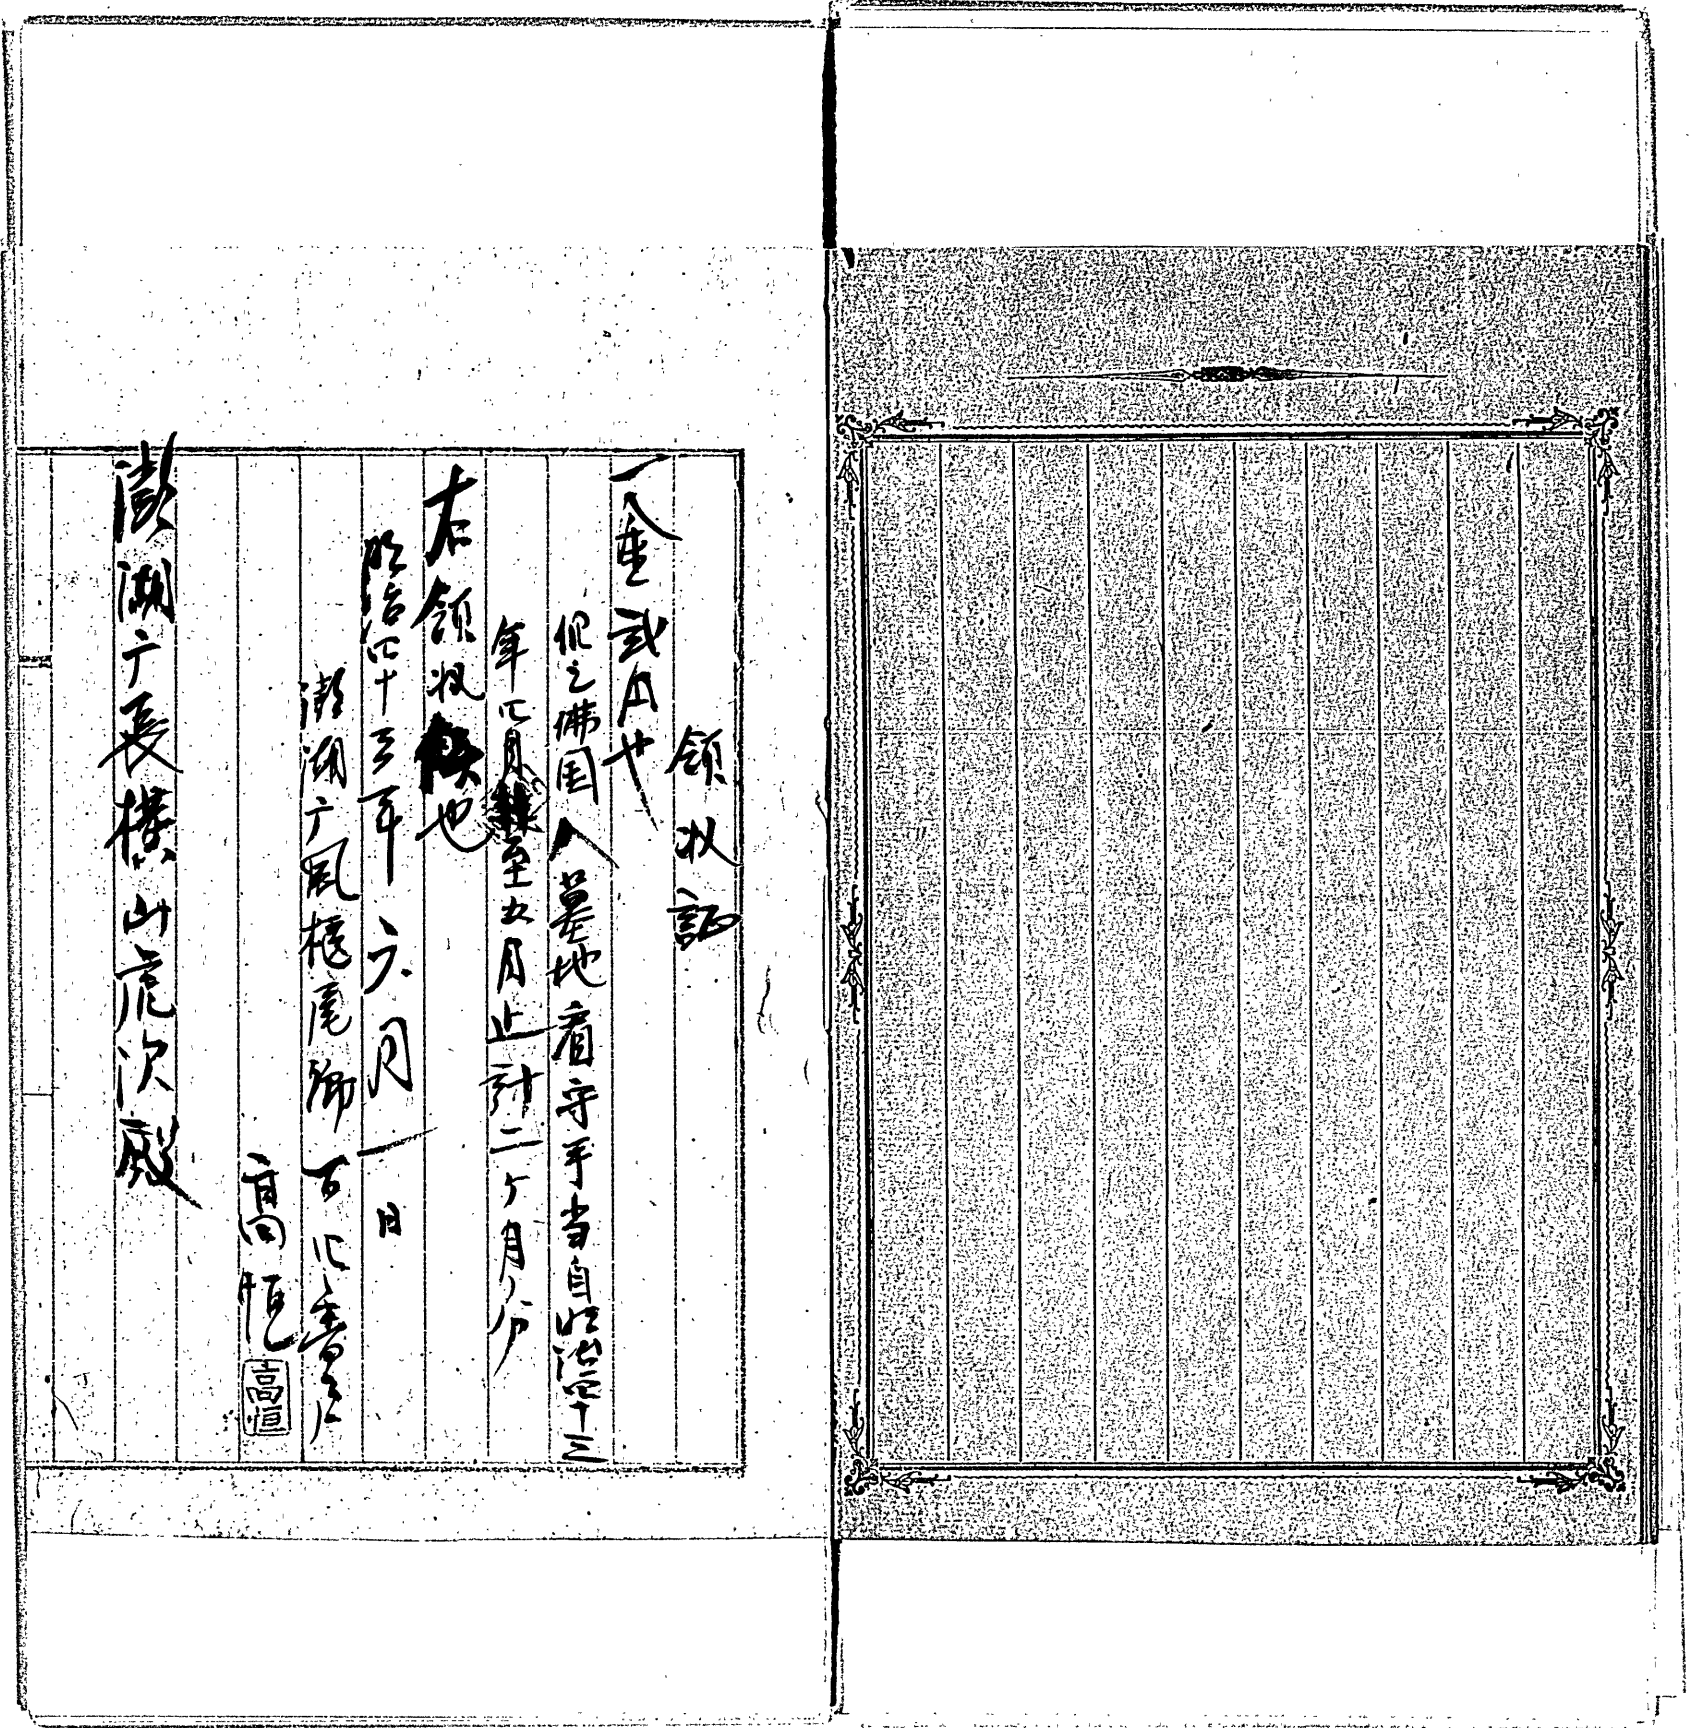 領收証
一金貳円也
但之佛国人墓地看守手当自明治四十三
年四月至五月止計二ヶ月分
右領收也
明治四十三年六月一日
澎湖庁風櫃尾鄉百四番戶
高恒
高恒
澎湖庁長橫山虎次殿